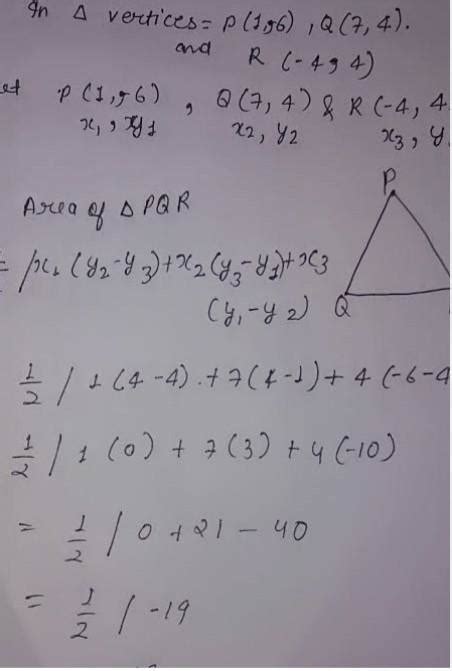 In Δ vertices = P(1,-6), Q(7, 4).
and R (-4, 4)
et P(1,-6), Q(7, 4) & R(-4, 4
x₁, y₁ x₂, y₂ x₃, y
Area of Δ PQR
P
= /x₁ (y₂-y₃)+x₂(y₃-y₁)+x₃
(y₁-y₂)
Q
1/2 / 1 (4-4) + 7(4-1) + 4 (-6-4
1/2 / 1 (0) + 7(3) + 4(-10)
= 1/2 / 0 + 21 - 40
= 1/2 / -19